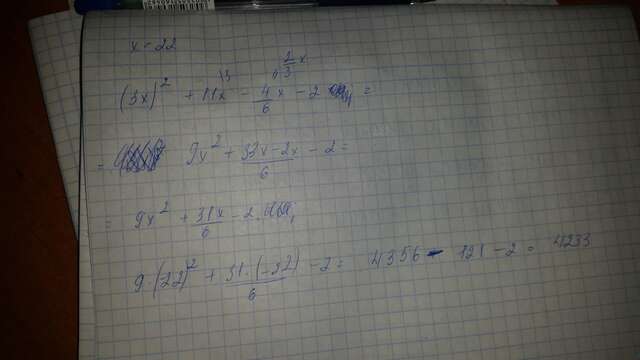 x = 22
(3x)² + 11x\3 - 4/6 x - 2 =
2/3 x
= 9x² + (33x - 2x)/6 - 2 =
= 9x² + 31x/6 - 2
9·(22)² + 31·(-22)/6 - 2 = 4356 - 121 - 2 = 4233